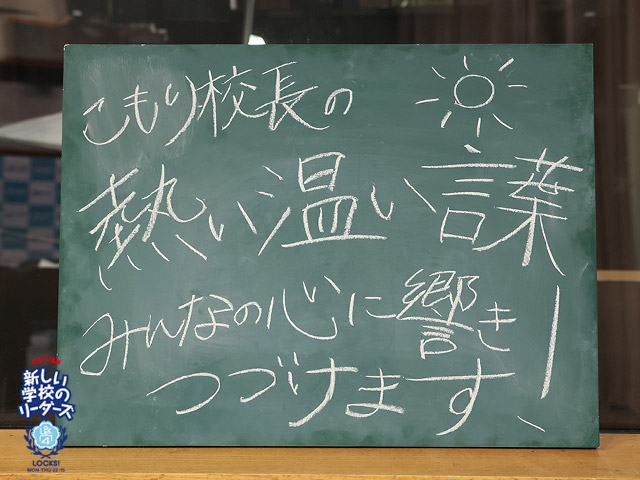 こもり校長の
熱い温い言葉
みんなの心に響き
つづけます!
新しい
学校の
リーダーズ
LOCKS!
MON-THU 22:15